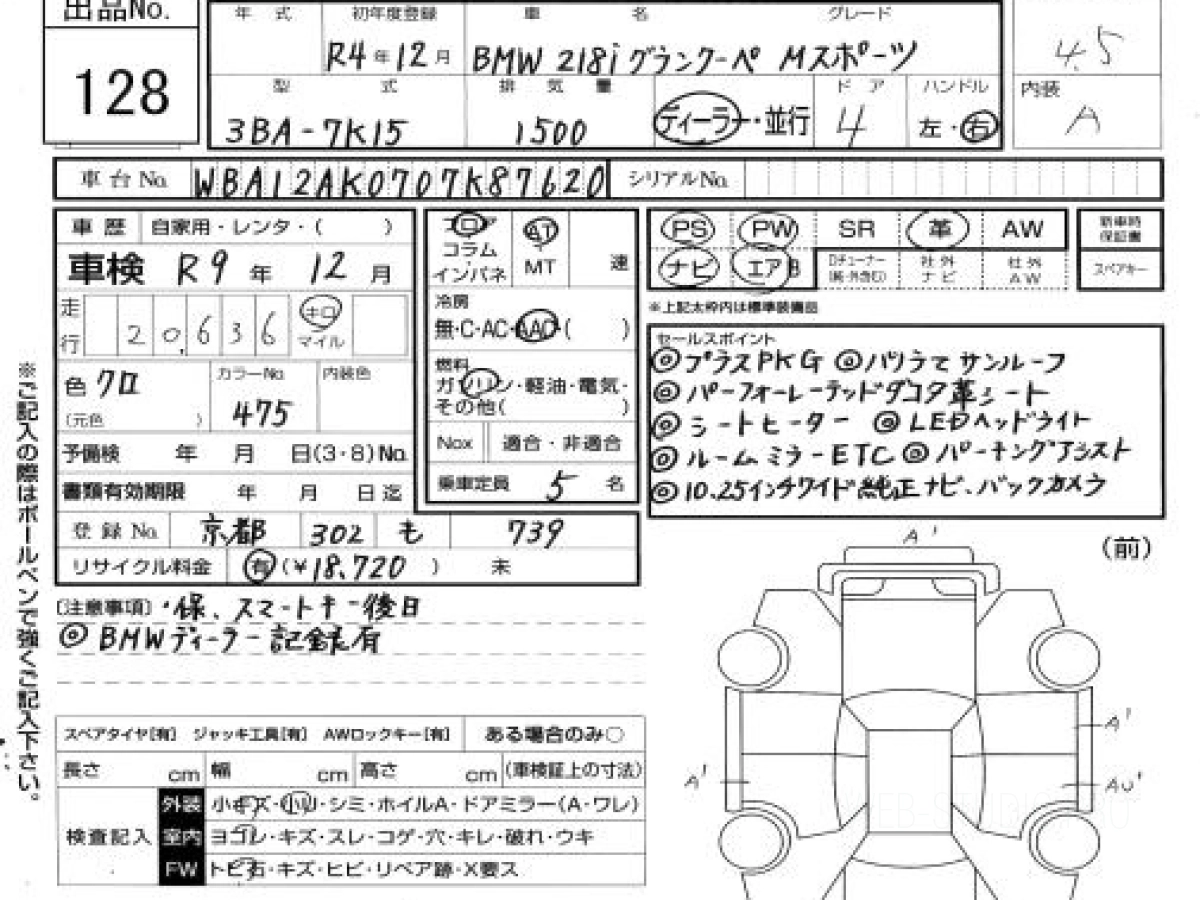 出品No.
128
年 式 初年度登録 車 名 グレード
R4年12月 BMW 218i グランクーペ Mスポーツ
4.5
型 式 排 気 量 ドア ハンドル 内装
3BA-7K15 1500 ディーラー・並行 4 左・右 A
車台No. WBA12AK0707K87620 シリアルNo.
車歴 自家用・レンタ・( )
車検 R9年 12月
走行 20,636 キロ マイル
色 クロ (元色 ) カラーNo. 475 内装色
予備検 年 月 日(3・8)No.
書類有効期限 年 月 日迄
登録No. 京都 302 も 739
リサイクル料金 有(¥18,720 ) 未
フロア コラム インパネ AT MT 速
冷房
無・C・AC・AAC・( )
燃料
ガソリン・軽油・電気・
その他( )
Nox 適合・非適合
乗車定員 5 名
PS PW SR 革 AW
ナビ エアB Dチューナー(純・外含む) 社外ナビ 社外AW
新車時保証書
スペアキー
※上記太枠内は標準装備品
セールスポイント
◎プラスPKG ◎パノラマサンルーフ
◎パーフォーレーテッドダコタ革シート
◎シートヒーター ◎LEDヘッドライト
◎ルームミラーETC ◎パーキングアシスト
◎10.25インチワイド純正ナビ、バックカメラ
[注意事項]・保、スマートキー後日
◎BMWディーラー記録有
スペアタイヤ[有] ジャッキ工具[有] AWロックキー[有] ある場合のみ○
長さ cm 幅 cm 高さ cm (車検証上の寸法)
検査記入
外装 小キズ・小凹・シミ・ホイルA・ドアミラー(A・ワレ)
室内 ヨゴレ・キズ・スレ・コゲ・穴・キレ・破れ・ウキ
FW トビ石・キズ・ヒビ・リペア跡・X要ス
※ご記入の際はボールペンで強くご記入下さい。
A' (前)
A'
A' AU'